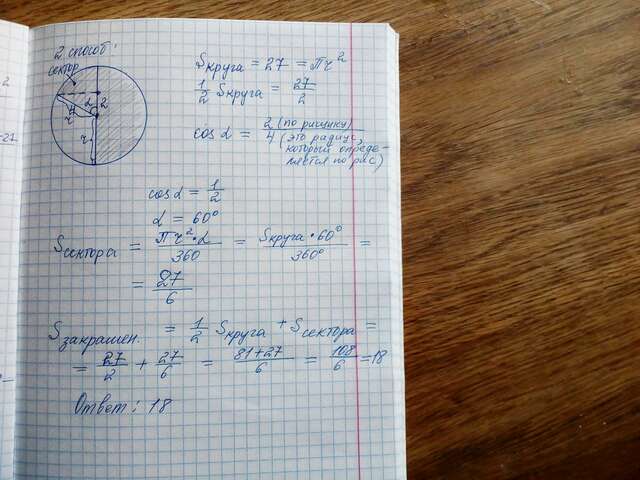 2 способ:
сектор
α 2
r 4
r
Sкруга = 27 = πr²
1/2 Sкруга = 27/2
cos α = 2 (по рисунку) / 4 (это радиус, который определяется по рис)
cos α = 1/2
α = 60°
Sсектора = πr²·α/360 = Sкруга·60°/360° =
= 27/6
Sзакрашен. = 1/2 Sкруга + Sсектора =
= 27/2 + 27/6 = 81+27/6 = 108/6 = 18
Ответ: 18
2
-27